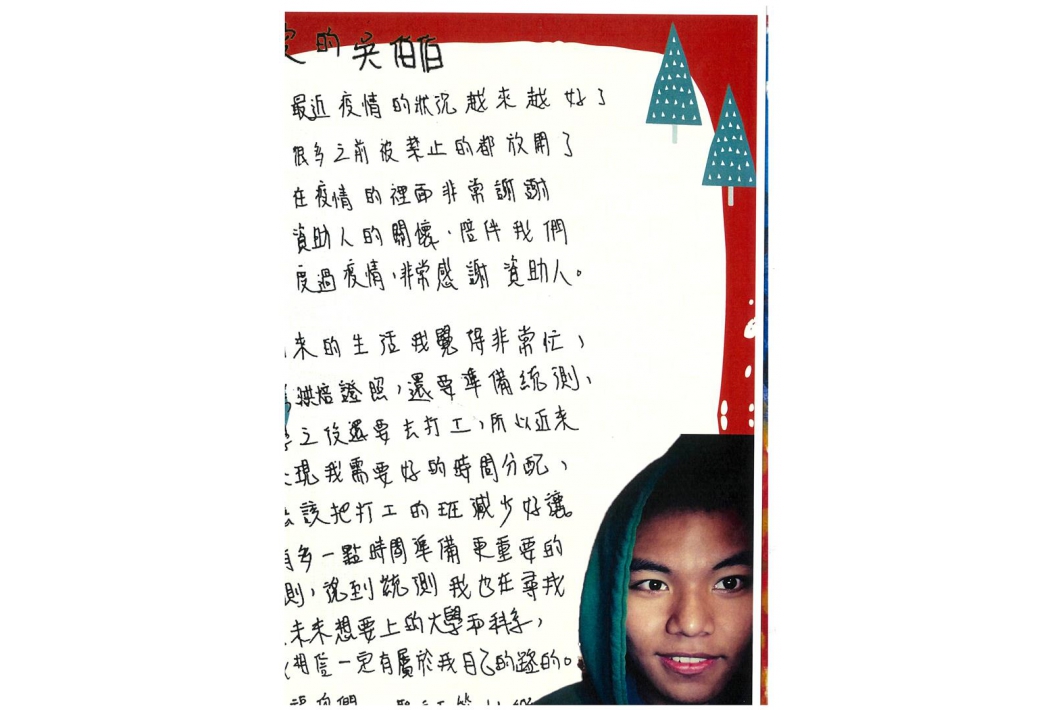 的 吳伯伯
最近疫情的狀況越來越好了
很多之前被禁止的都放開了
在疫情的裡面非常謝謝
資助人的關懷、陪伴我們
度過疫情,非常感謝資助人。
來的生活我覺得非常忙,
烘焙證照,還要準備統測,
之後還要去打工,所以近來
現我需要好的時間分配,
該把打工的班減少好讓
有多一點時間準備更重要的
測,說到統測我也在尋找
未來想要上的大學和科系,
相信一定有屬於我自己的路的。